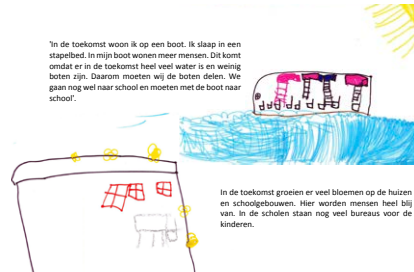 'In de toekomst woon ik op een boot. Ik slaap in een
stapelbed. In mijn boot wonen meer mensen. Dit komt
omdat er in de toekomst heel veel water is en weinig
boten zijn. Daarom moeten wij de boten delen. We
gaan nog wel naar school en moeten met de boot naar
school'.
In de toekomst groeien er veel bloemen op de huizen
en schoolgebouwen. Hier worden mensen heel blij
van. In de scholen staan nog veel bureaus voor de
kinderen.